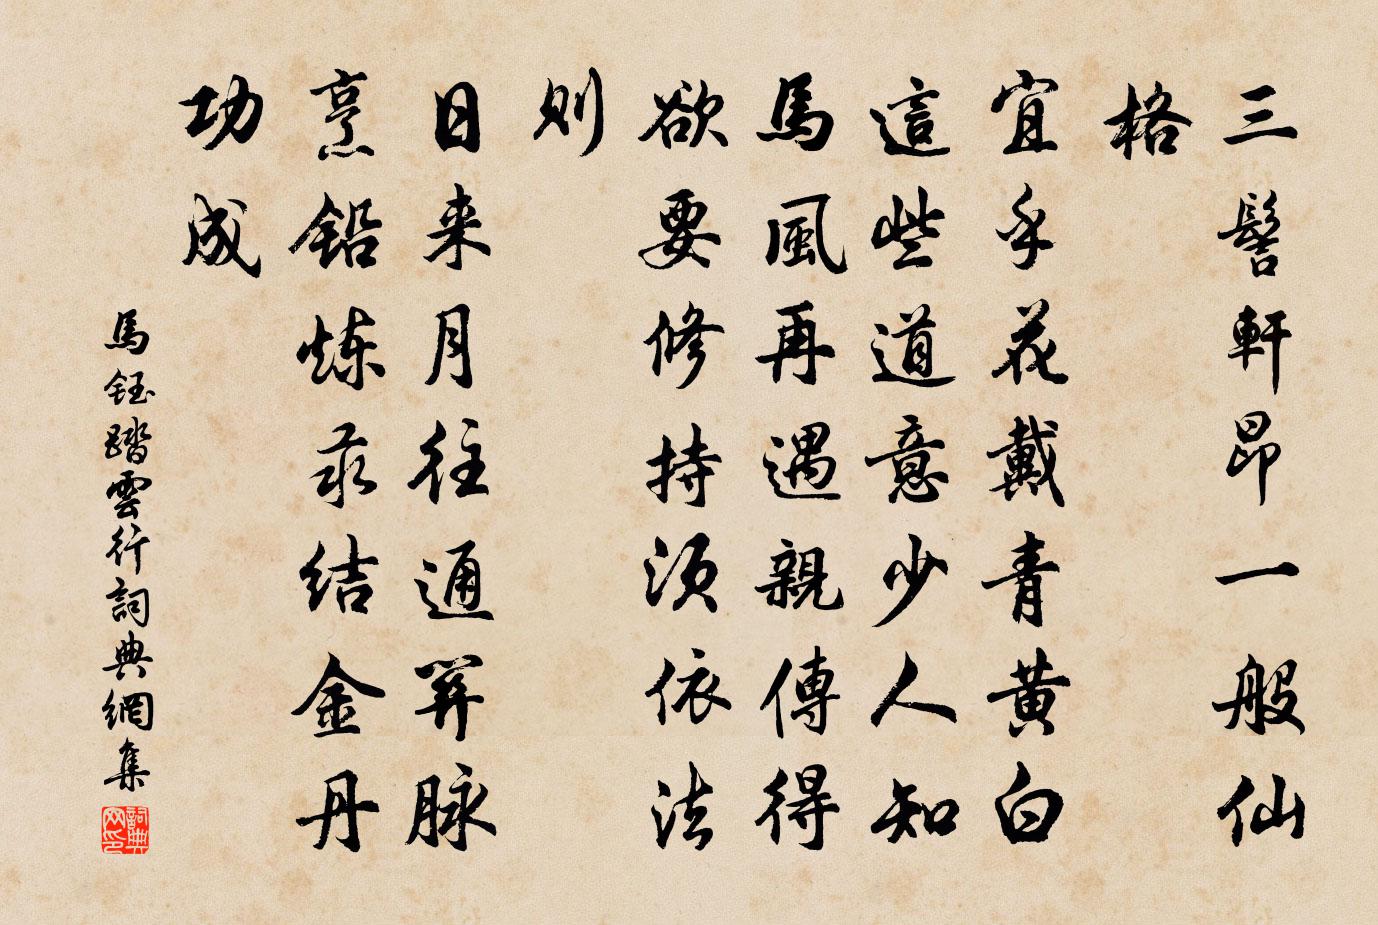 三髻軒昂一般仙
格
宜乎花戴青黄白
這些道意少人知
馬風再遇親傳得
欲要修持須依法
則
日来月往通關脉
烹鉛炼汞结金丹
功成
馬鈺踏雲行詞典網集
詞典网印